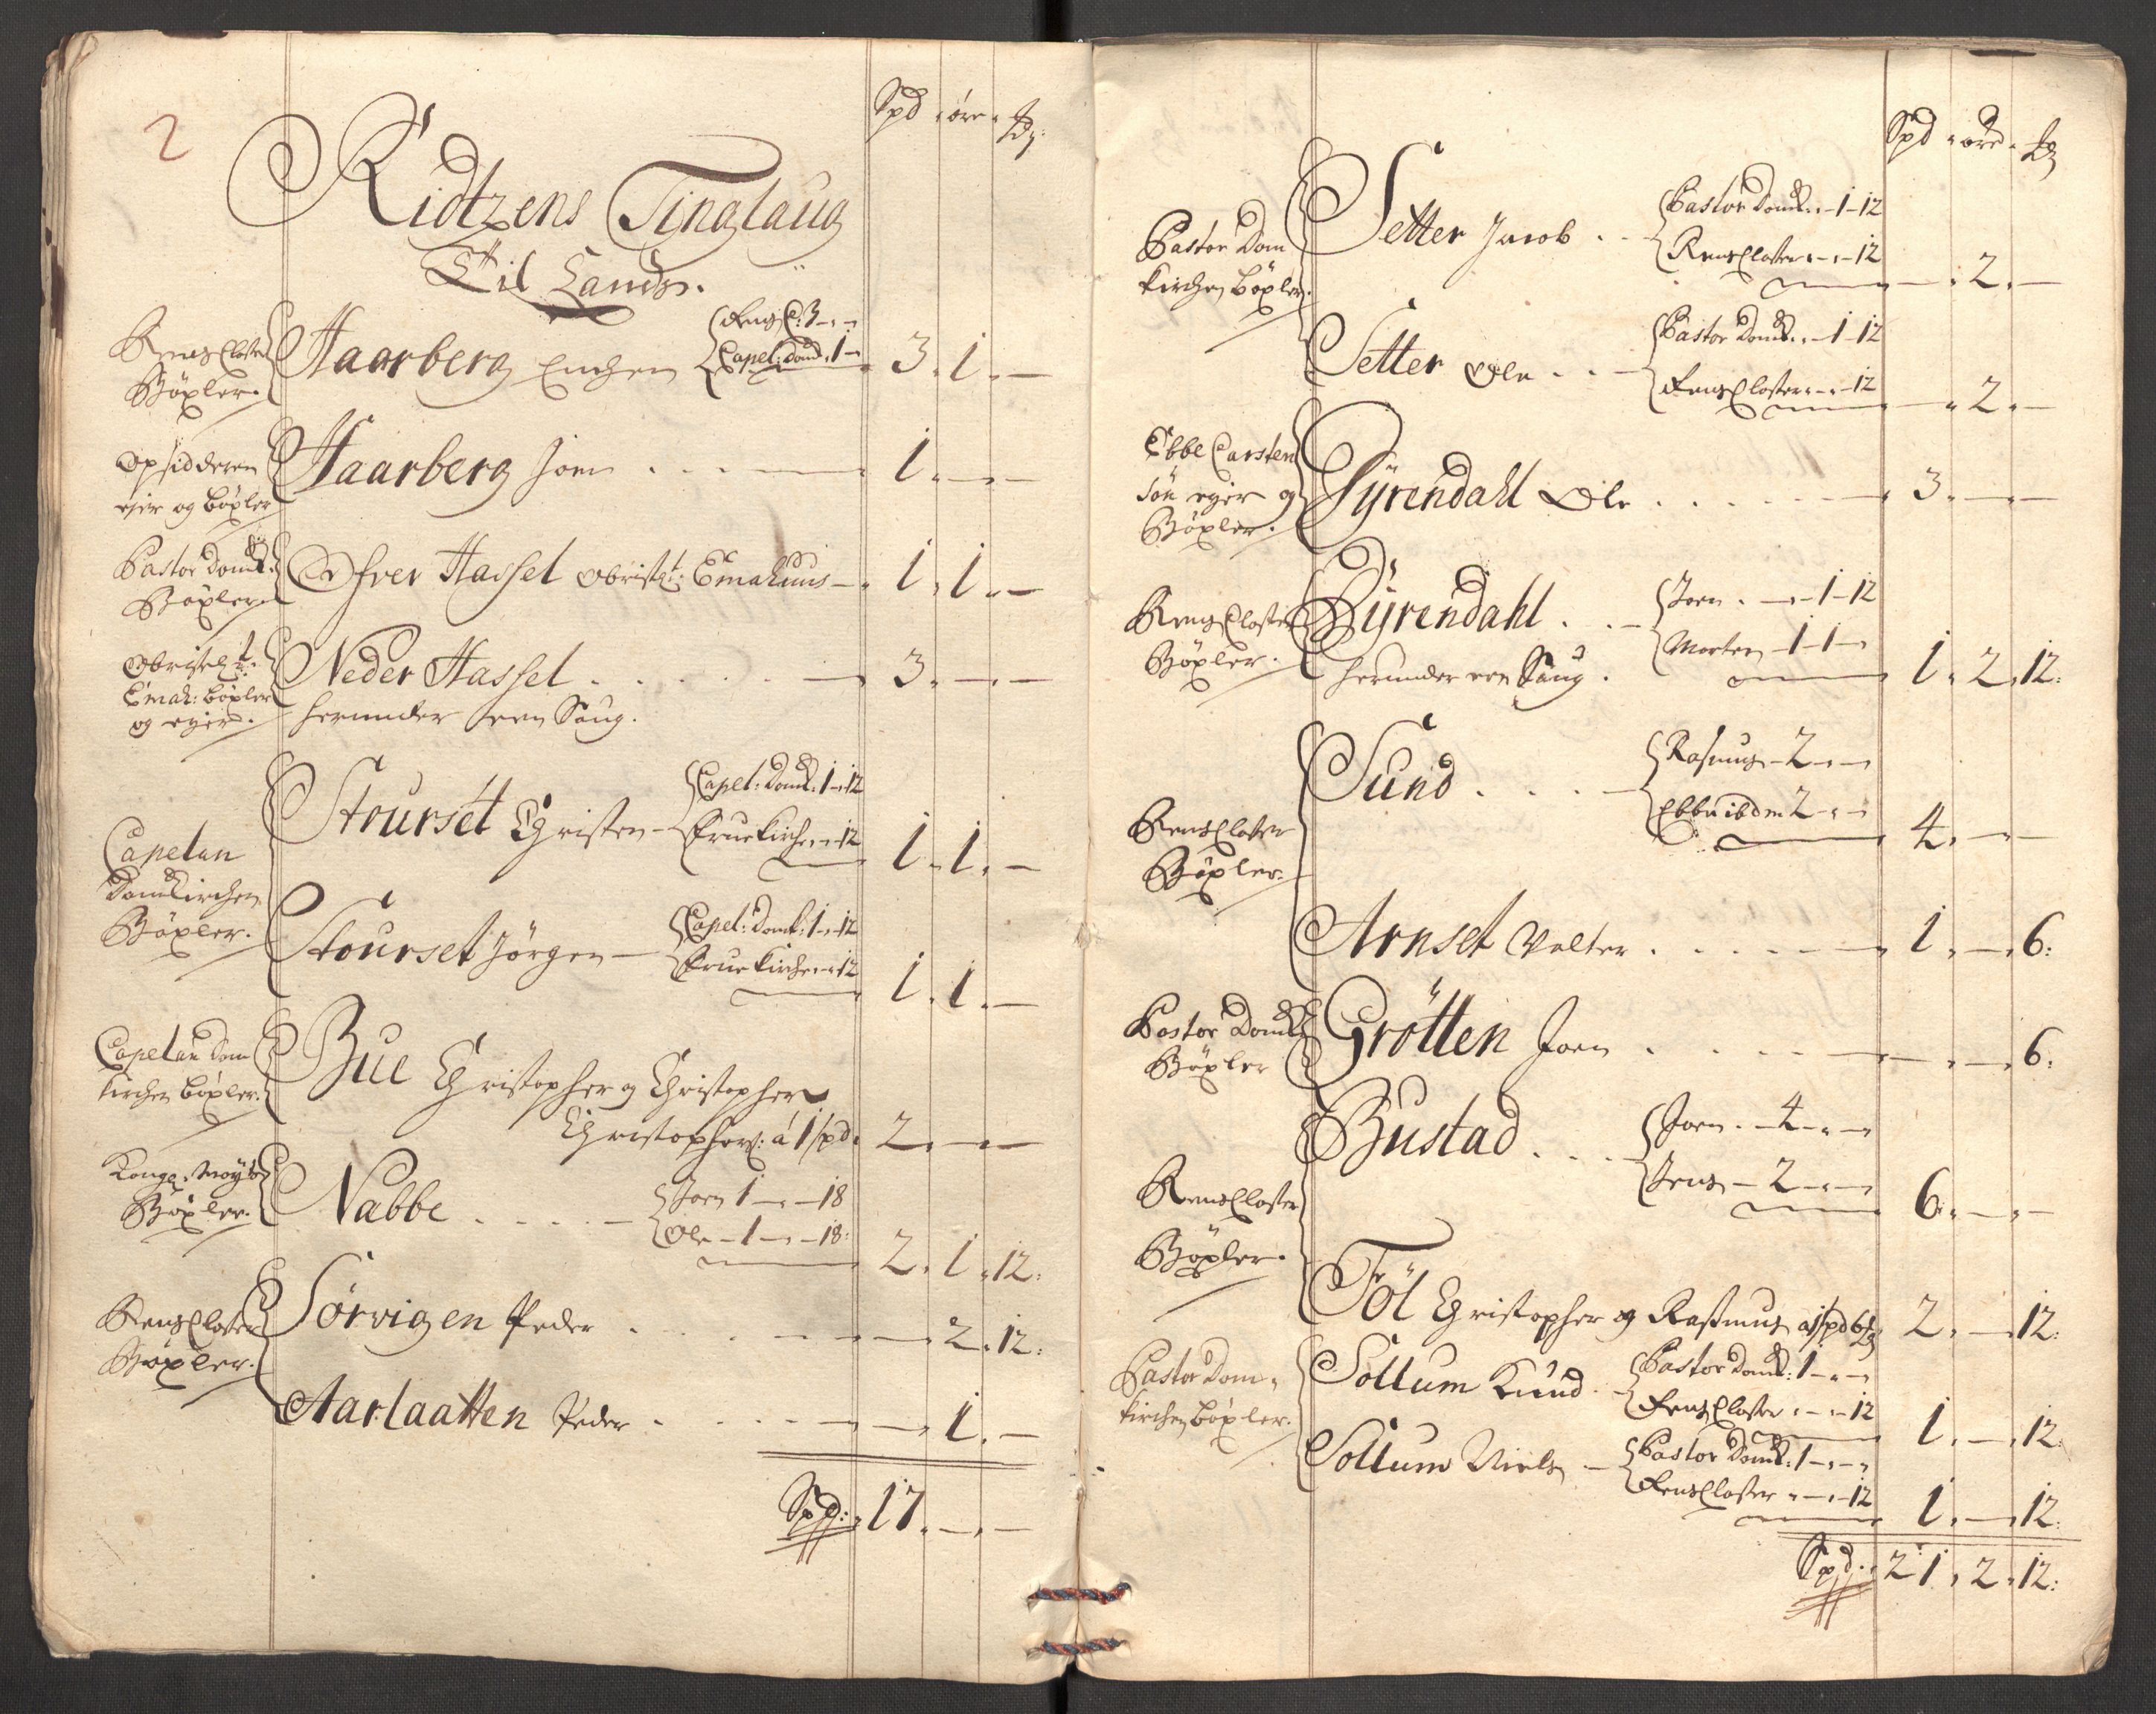 2
Spd øre
Ridtzens Tinglaug
Til Lands.
RensCloster
Böxler.
Haarberg Enchen
RensC: 3 - -
Capel: Domk: 1 -
3. 1. -
Opsidderen
ejer og böxler
Haarberg Joen . . . 1. - -
Pastor Domk:
Böxler
Öfver Hassel Obristlt: Emahuus - 1. 1. -
Obristlt:
Emah: böxler
og ejer.
Neder Hassel . . . . 3. - -
herunder een Saug.
Capelan
Domkirchen
Böxler.
Stourset Christen
Capel: Domk: 1 - 12
Fruekirche - - 12
1. 1. -
Stourset Jörgen
Capel: Domk: 1 - 12
Fruekirche - - 12
1. 1. -
Capelan Dom
kirchen böxler.
Bue Christopher og Christopher
Christophers: á 1 spd. 2. - -
Kong: Mayts
Böxler.
Nabbe . . . .
Joen 1 - - 18
Ole - 1 - - 18:
2. 1. 12:
RensCloster
Böxler.
Sörvigen Peder . . . - 2. 12:
Aarlaatten Peder . . . - 1. -
Spd: 17. - -
Spd øre
Pastor Dom
kirchen böxler.
Setter Jacob . .
Pastor Domk: - 1 - 12
RensCloster - - 12
- 2. -
Setter Ole . . .
Pastor Domk: - 1 - 12
RensCloster - - 12
- 2. -
Ebbe Carsten
sön ejer og
Böxler.
Pyrendahl Ole . . . . 3. - -
RensCloster
Böxler.
Pyrendahl . . .
Joen . - - 1 - 12
Morten - 1 - 1 -
herunder een Saug.
1. 2. 12:
RensCloster
Böxler.
Sund . . . .
Rasmus - 2 - -
Ebbe ibdm 2 - -
4. - -
Arnset Volter . . . . 1. - 6:
Pastor Domk:
Böxler
Grötten Joen . . . . - - 6:
RensCloster
Böxler.
Bustad . . .
Joen . - 4 - -
Jens - 2 - -
6. - -
Föl Christopher og Rasmus á 1 spd 6 2. - 12:
Pastor Dom
kirchen böxler.
Sollum Knud
Pastor Domk: 1 - -
RensCloster - - 12
1. - 12:
Sollum Niels
Pastor Domk: 1 - -
RensCloster - - 12
1. - 12:
Spd: 21. 2. 12: